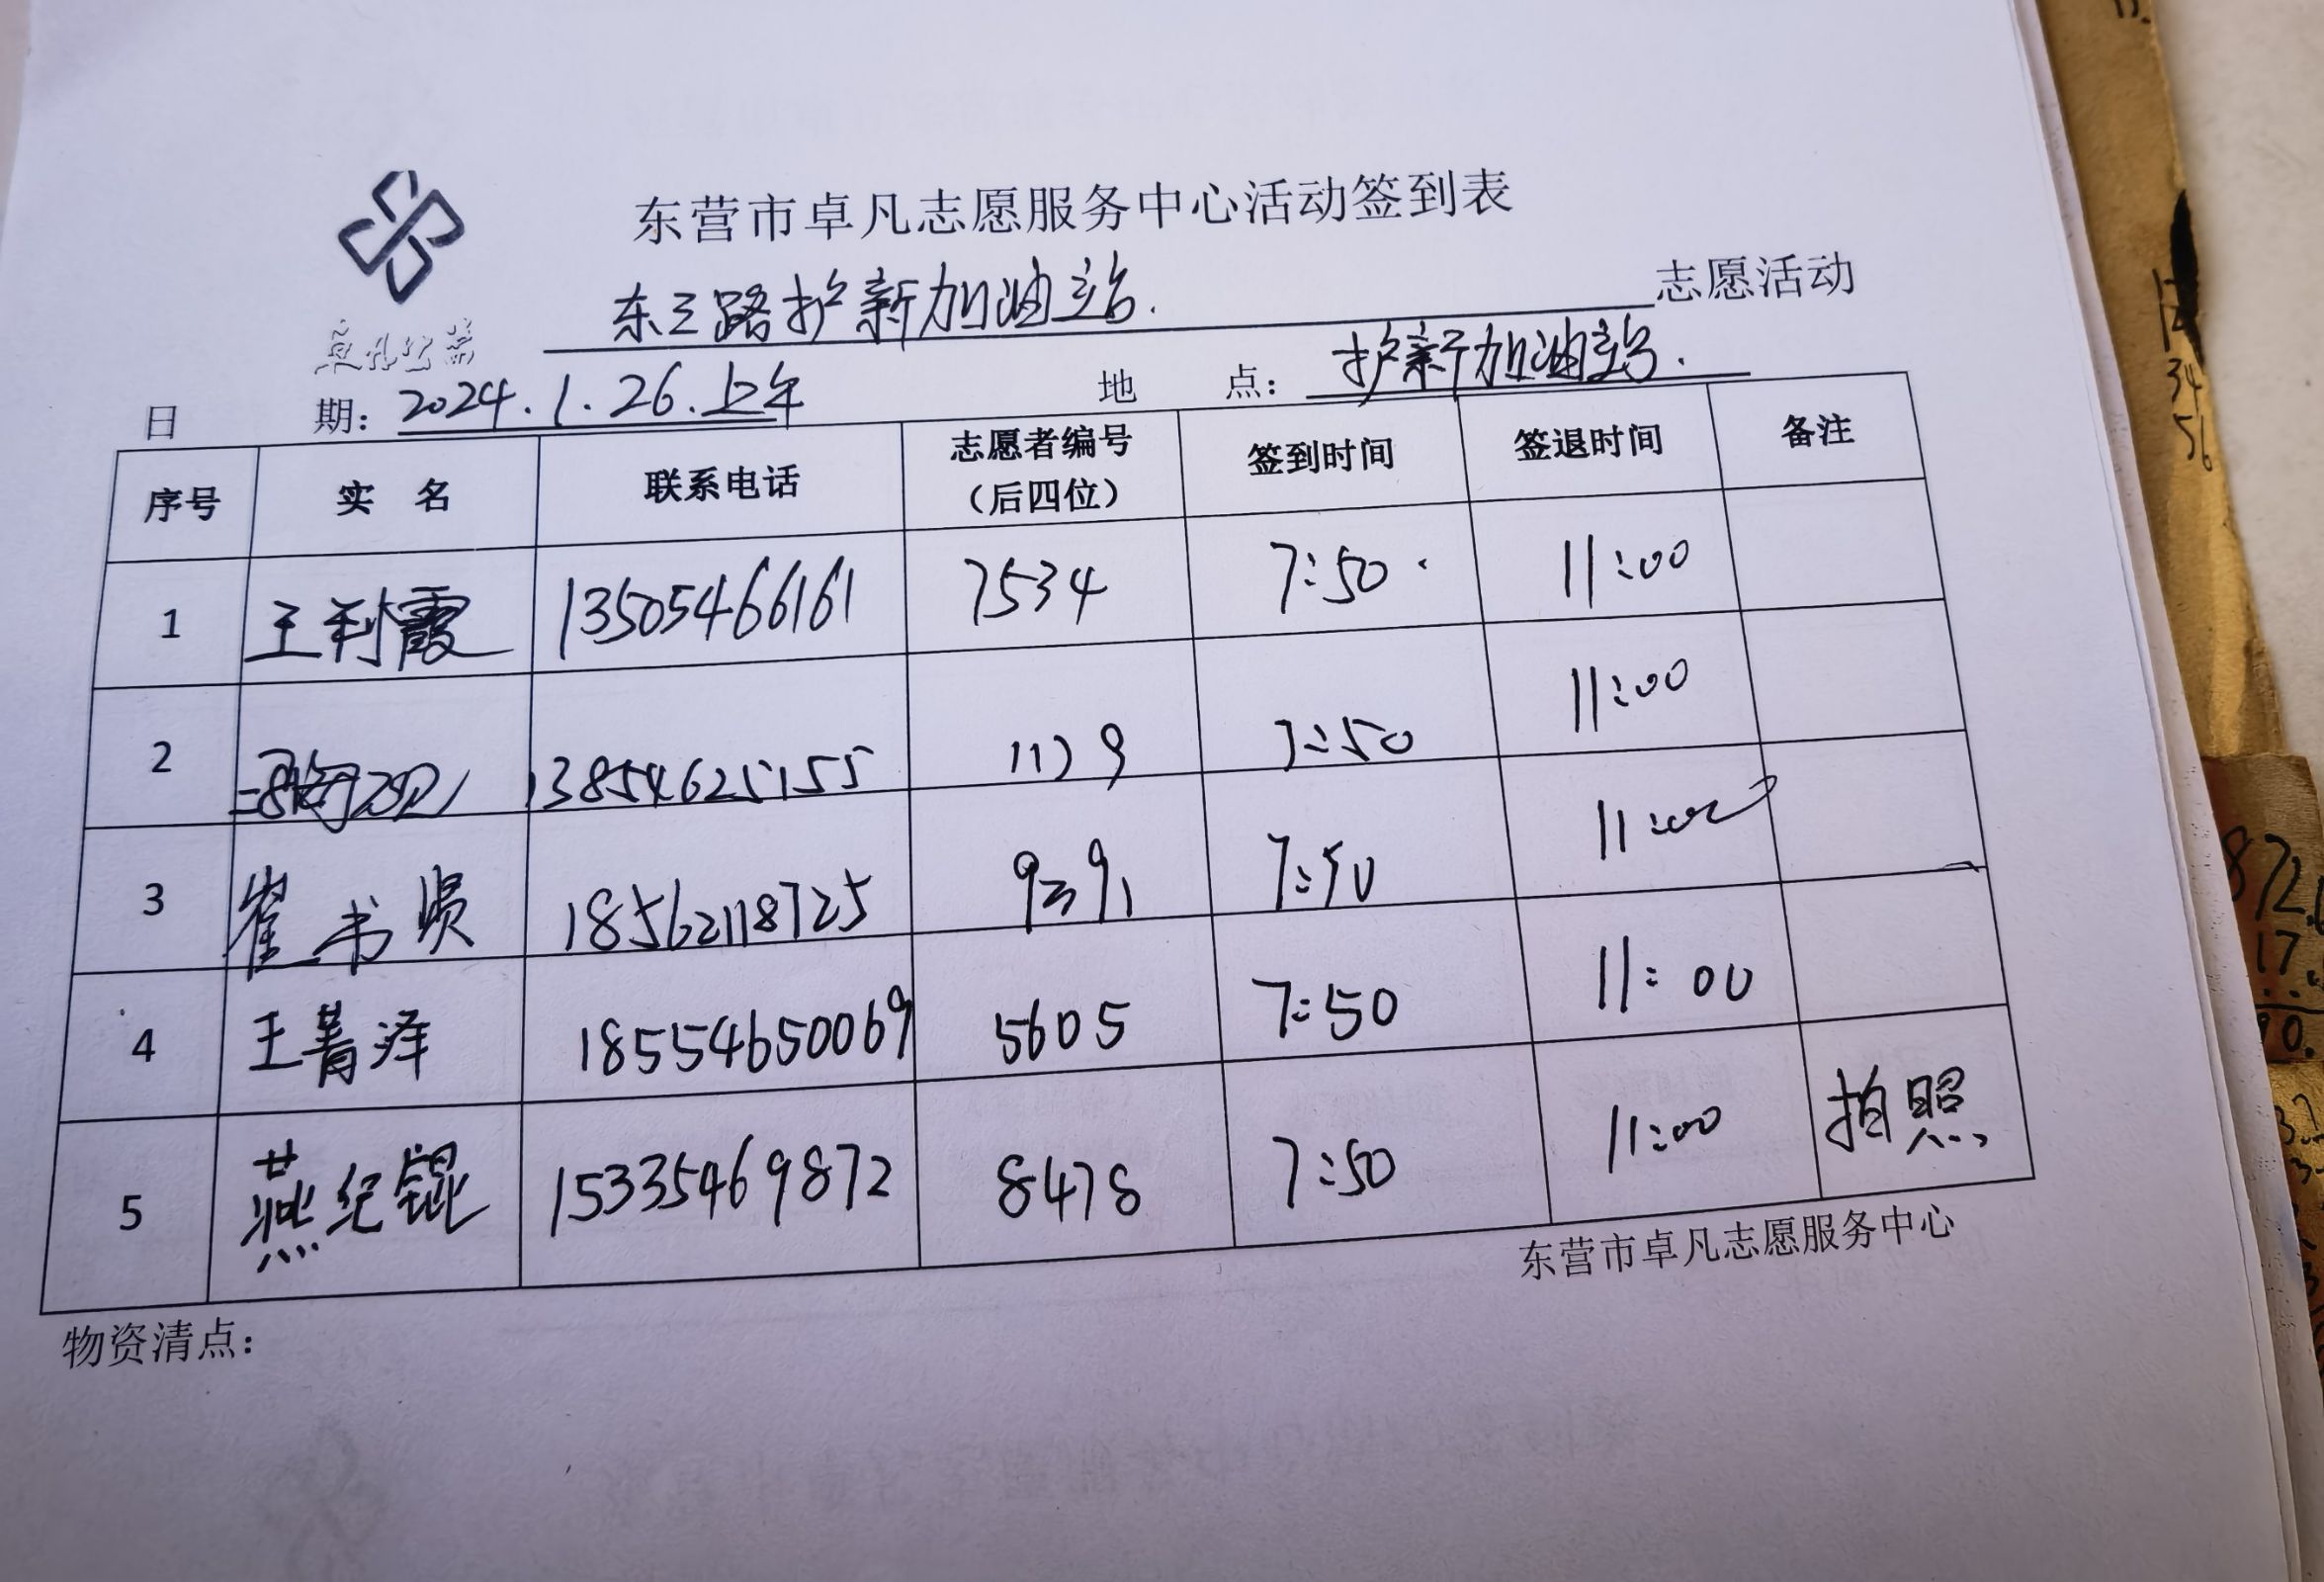 东营市卓凡志愿服务中心活动签到表
东三路护新加油站. 志愿活动
卓凡公益
日 期: 2024.1.26.上午 地 点: 护新加油站.
序号 实 名 联系电话 志愿者编号（后四位） 签到时间 签退时间 备注
1 王利霞 13505466161 7534 7:50 11:00
2 13854625155 1129 7:50 11:00
3 崔书贤 18562118725 9291 7:50 11:00
4 王菁泽 18554650069 5605 7:50 11:00
5 燕纪锟 15335469872 8478 7:50 11:00 拍照
东营市卓凡志愿服务中心
物资清点:
34
56
872
17